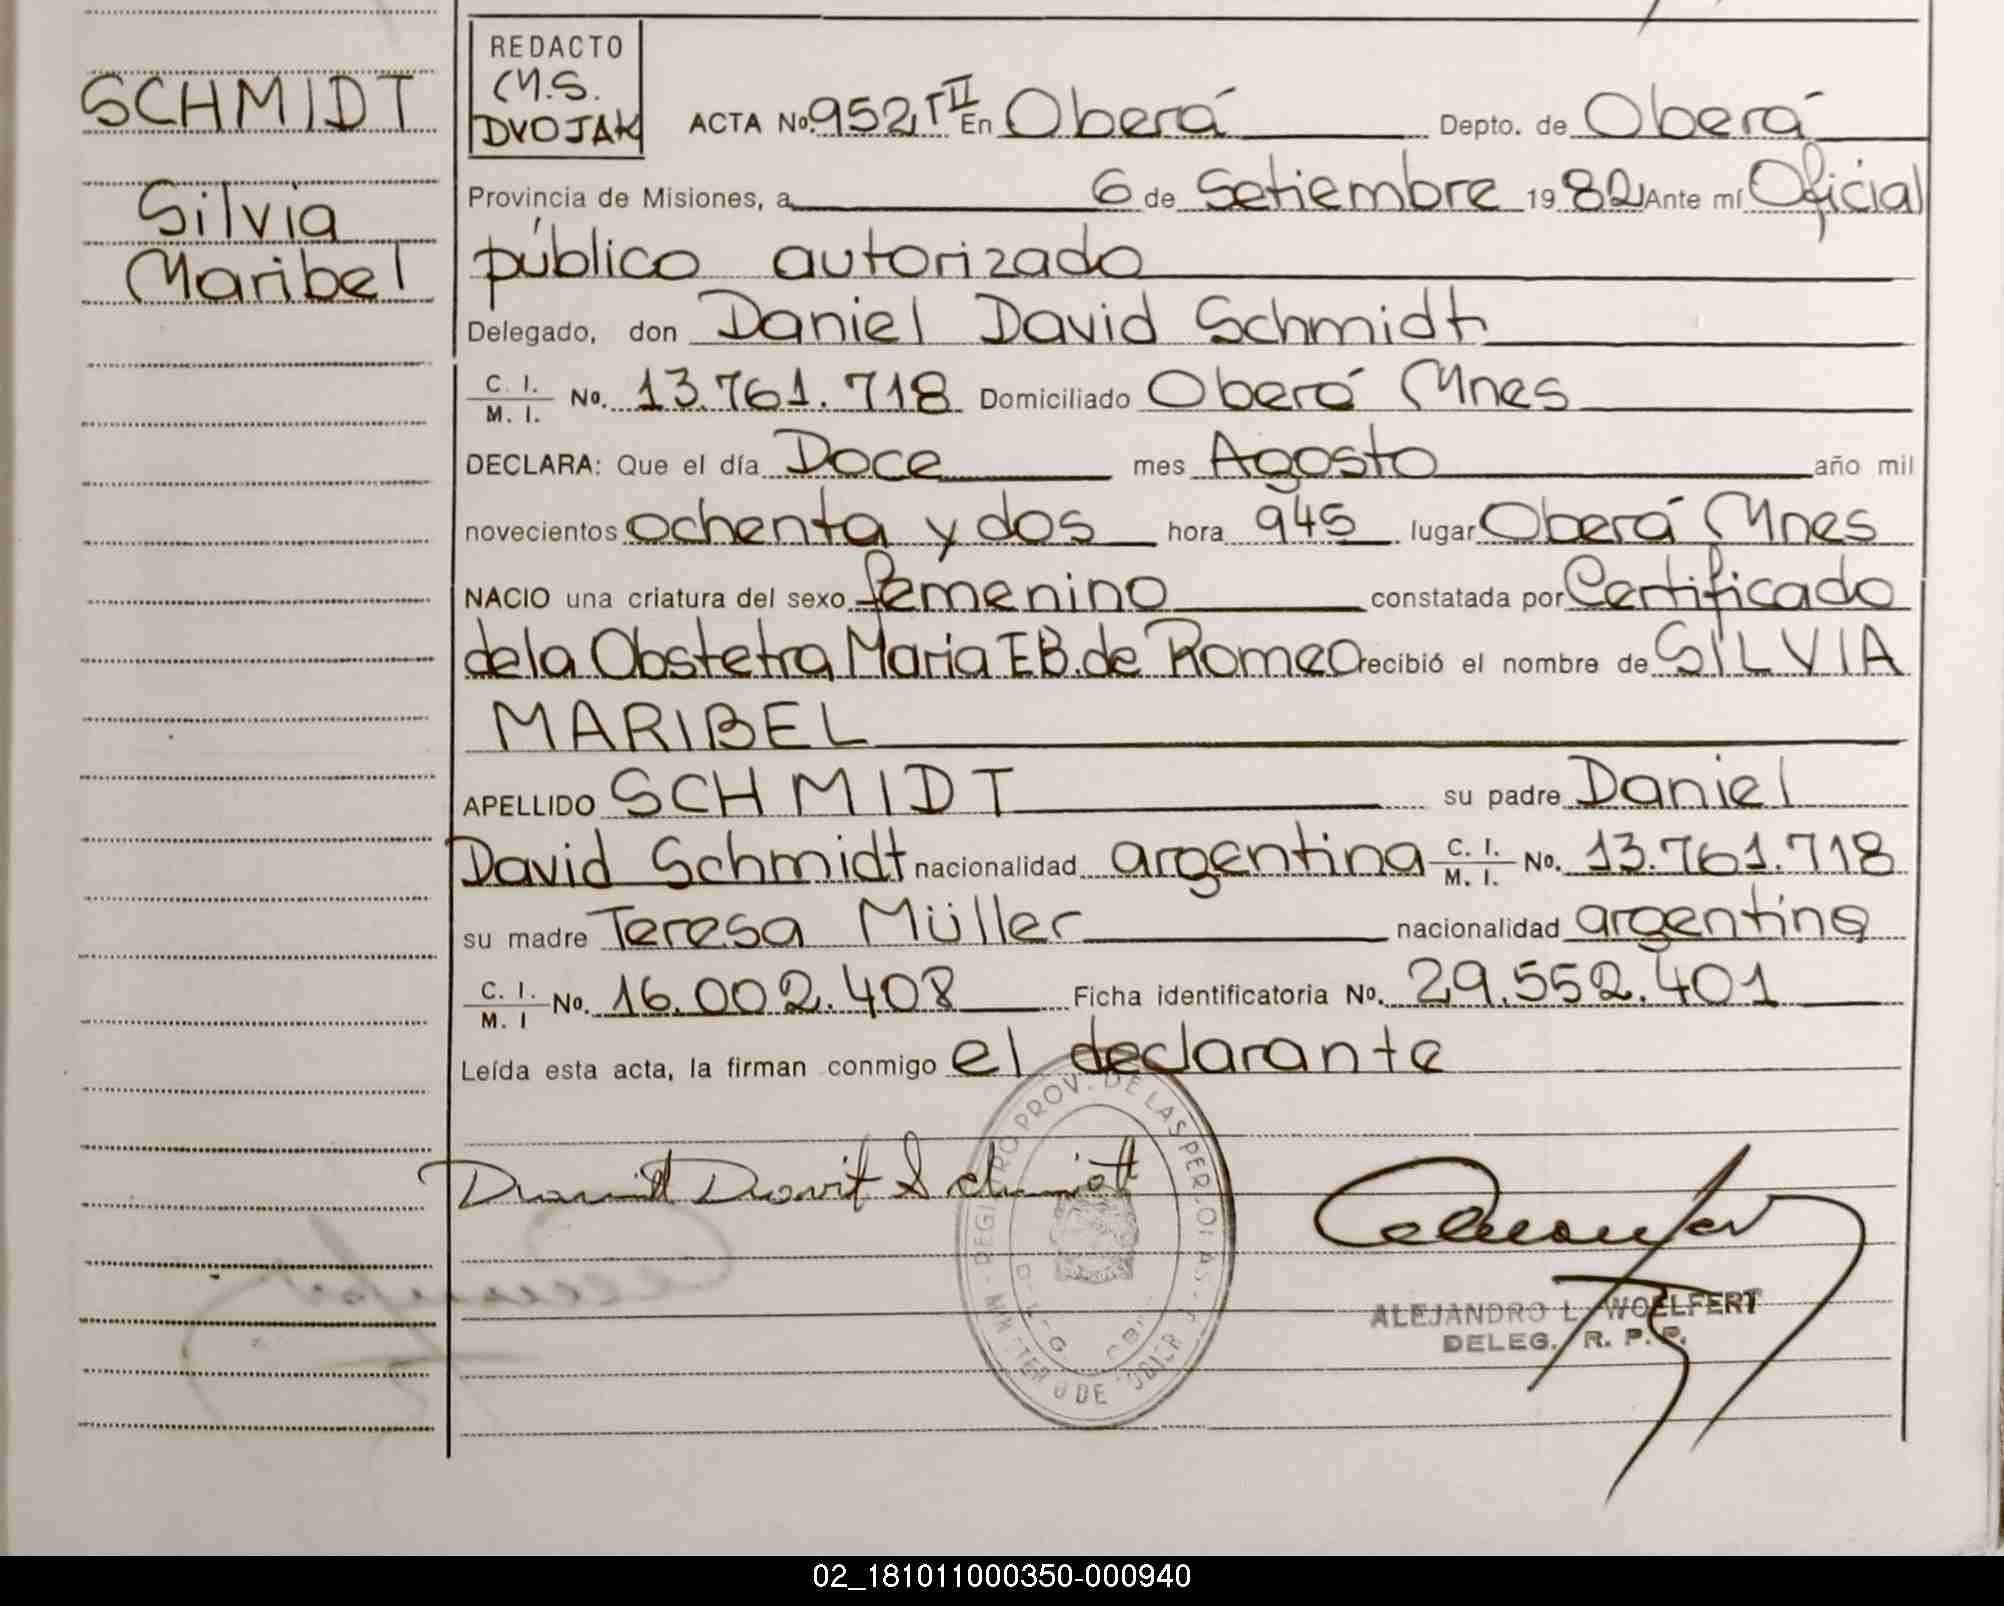 SCHMIDT
Silvia
Maribel
REDACTO
M.S.
DVOJAK
ACTA No. 952 T II En Oberá Depto. de Oberá
Provincia de Misiones, a 6 de Setiembre 1982 Ante mí Oficial
público autorizado
Delegado, don Daniel David Schmidt
C. I. / M. I. No. 13.761.718 Domiciliado Oberá Mnes
DECLARA: Que el día Doce mes Agosto año mil
novecientos ochenta y dos hora 945 lugar Oberá Mnes
NACIO una criatura del sexo femenino constatada por Certificado
de la Obstetra Maria E B. de Romeo recibió el nombre de SILVIA
MARIBEL
APELLIDO SCHMIDT su padre Daniel
David Schmidt nacionalidad argentina C. I. / M. I. No. 13.761.718
su madre Teresa Müller nacionalidad argentina
C. I. / M. I No. 16.002.408 Ficha identificatoria No. 29.552.401
Leída esta acta, la firman conmigo el declarante
REGISTRO PROV. DE LAS PER
ALEJANDRO L. WOELFERT
DELEG. R. P. P.
02_181011000350-000940